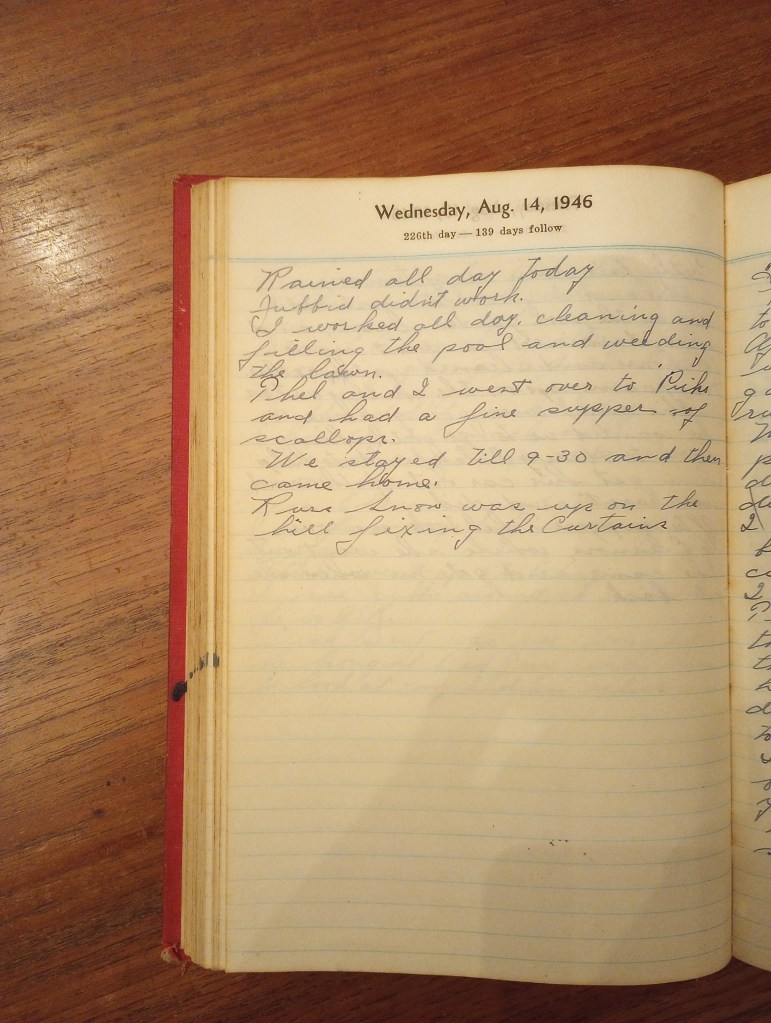 Wednesday, Aug. 14, 1946
226th day — 139 days follow
Rained all day today
didn't work.
I worked all day. cleaning and
filling the pool and weeding
the lawn.
Phel and I went over to
and had a fine supper of
scallops.
We stayed till 9-30 and then
came home.
Russ Snow was up on the
hill fixing the Curtains